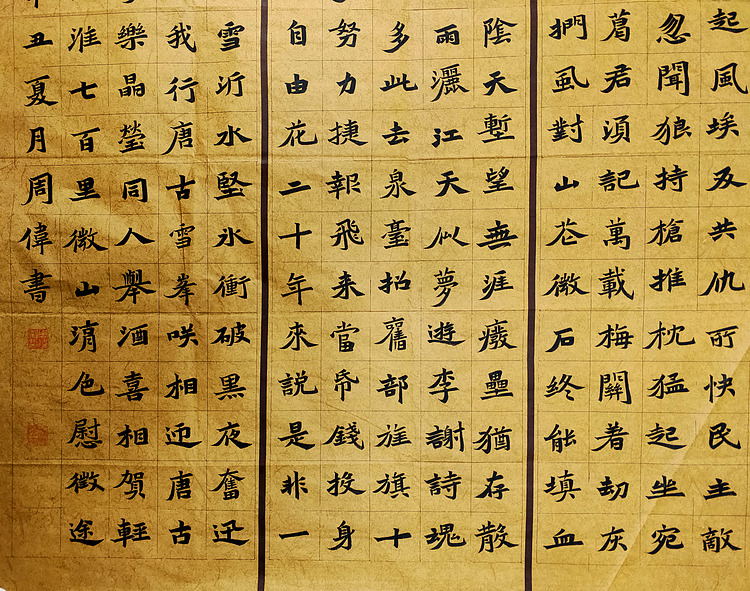 起風埃及共仇所快民主敵
忽聞狼持槍推枕猛起坐宛
葛君須記萬載梅關着劫灰
捫虱對山花微石終能填血
陰天塹望無涯廢壘猶存散
雨灑江天似夢遊李謝詩魂
多此去泉臺招舊部旌旗十
努力捷報飛来當帋錢投身
自由花二十年來說是非一
雪沂水堅冰衝破黑夜奮迅
我行唐古雪峯咲相迎唐古
樂晶瑩同人舉酒喜相賀輕
淮七百里微山色慰徵途
丑夏月周偉書